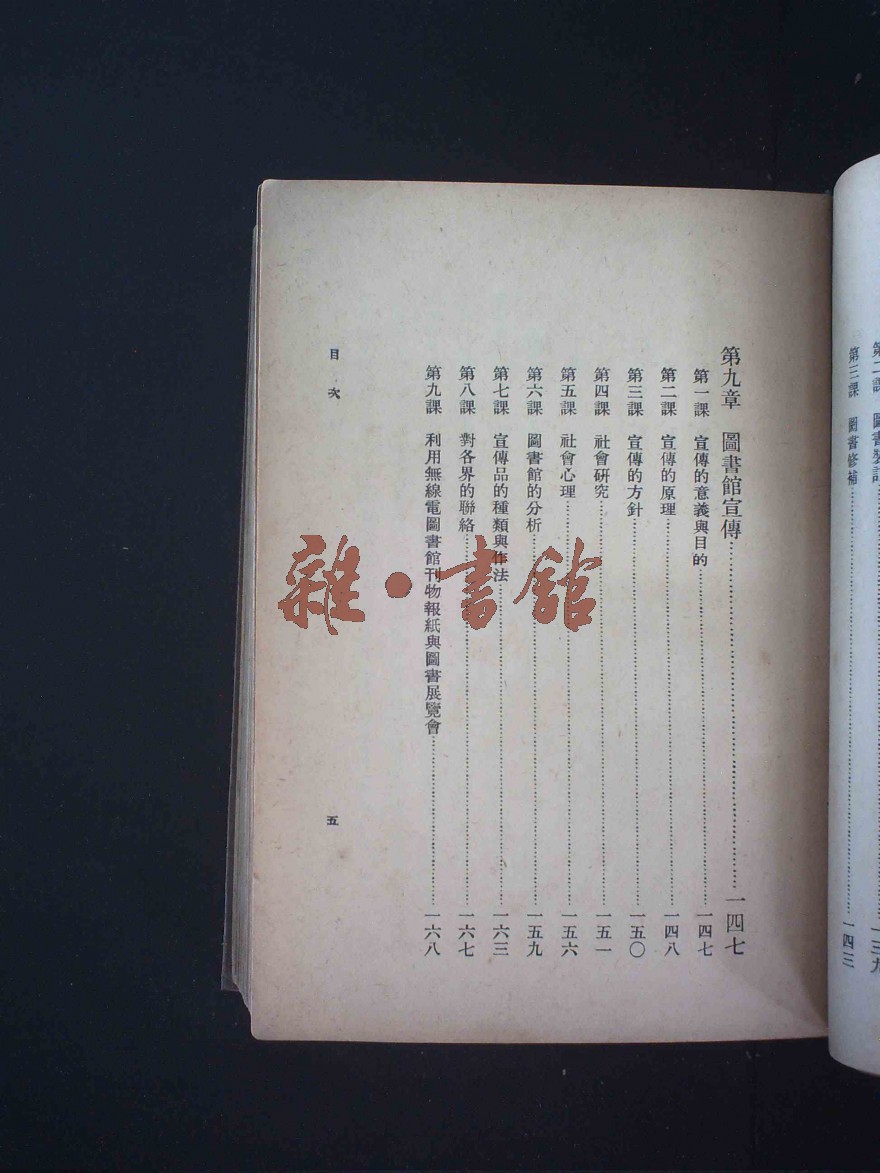 第二課 圖書裝訂……一三九
第三課 圖書修補……一四三
第九章 圖書館宣傳……一四七
第一課 宣傳的意義與目的……一四七
第二課 宣傳的原理……一四八
第三課 宣傳的方針……一五〇
第四課 社會研究……一五一
第五課 社會心理……一五六
第六課 圖書館的分析……一五九
第七課 宣傳品的種類與作法……一六三
第八課 對各界的聯絡……一六七
第九課 利用無線電圖書館刊物報紙與圖書展覽會……一六八
目次
五
雜·書館